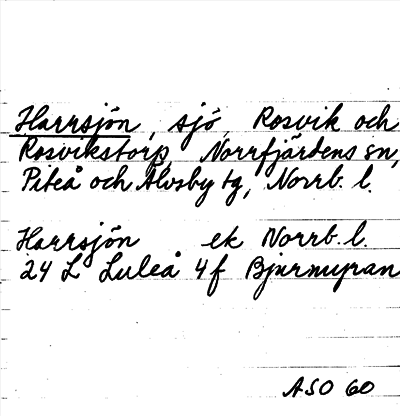 Harrsjön, sjö, Rosvik och
Rosvikstorp, Norrfjärdens sn,
Piteå och Älvsby tg, Norrb. l.
Harrsjön ek Norrb. l.
24 L Luleå 4f Bjurmyran
ASO 60